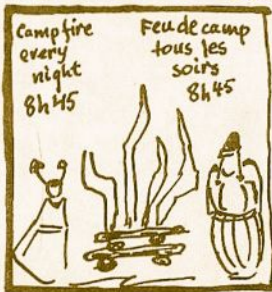 Campfire
every
night
8h45
Feu de camp
tous les
soirs
8h45